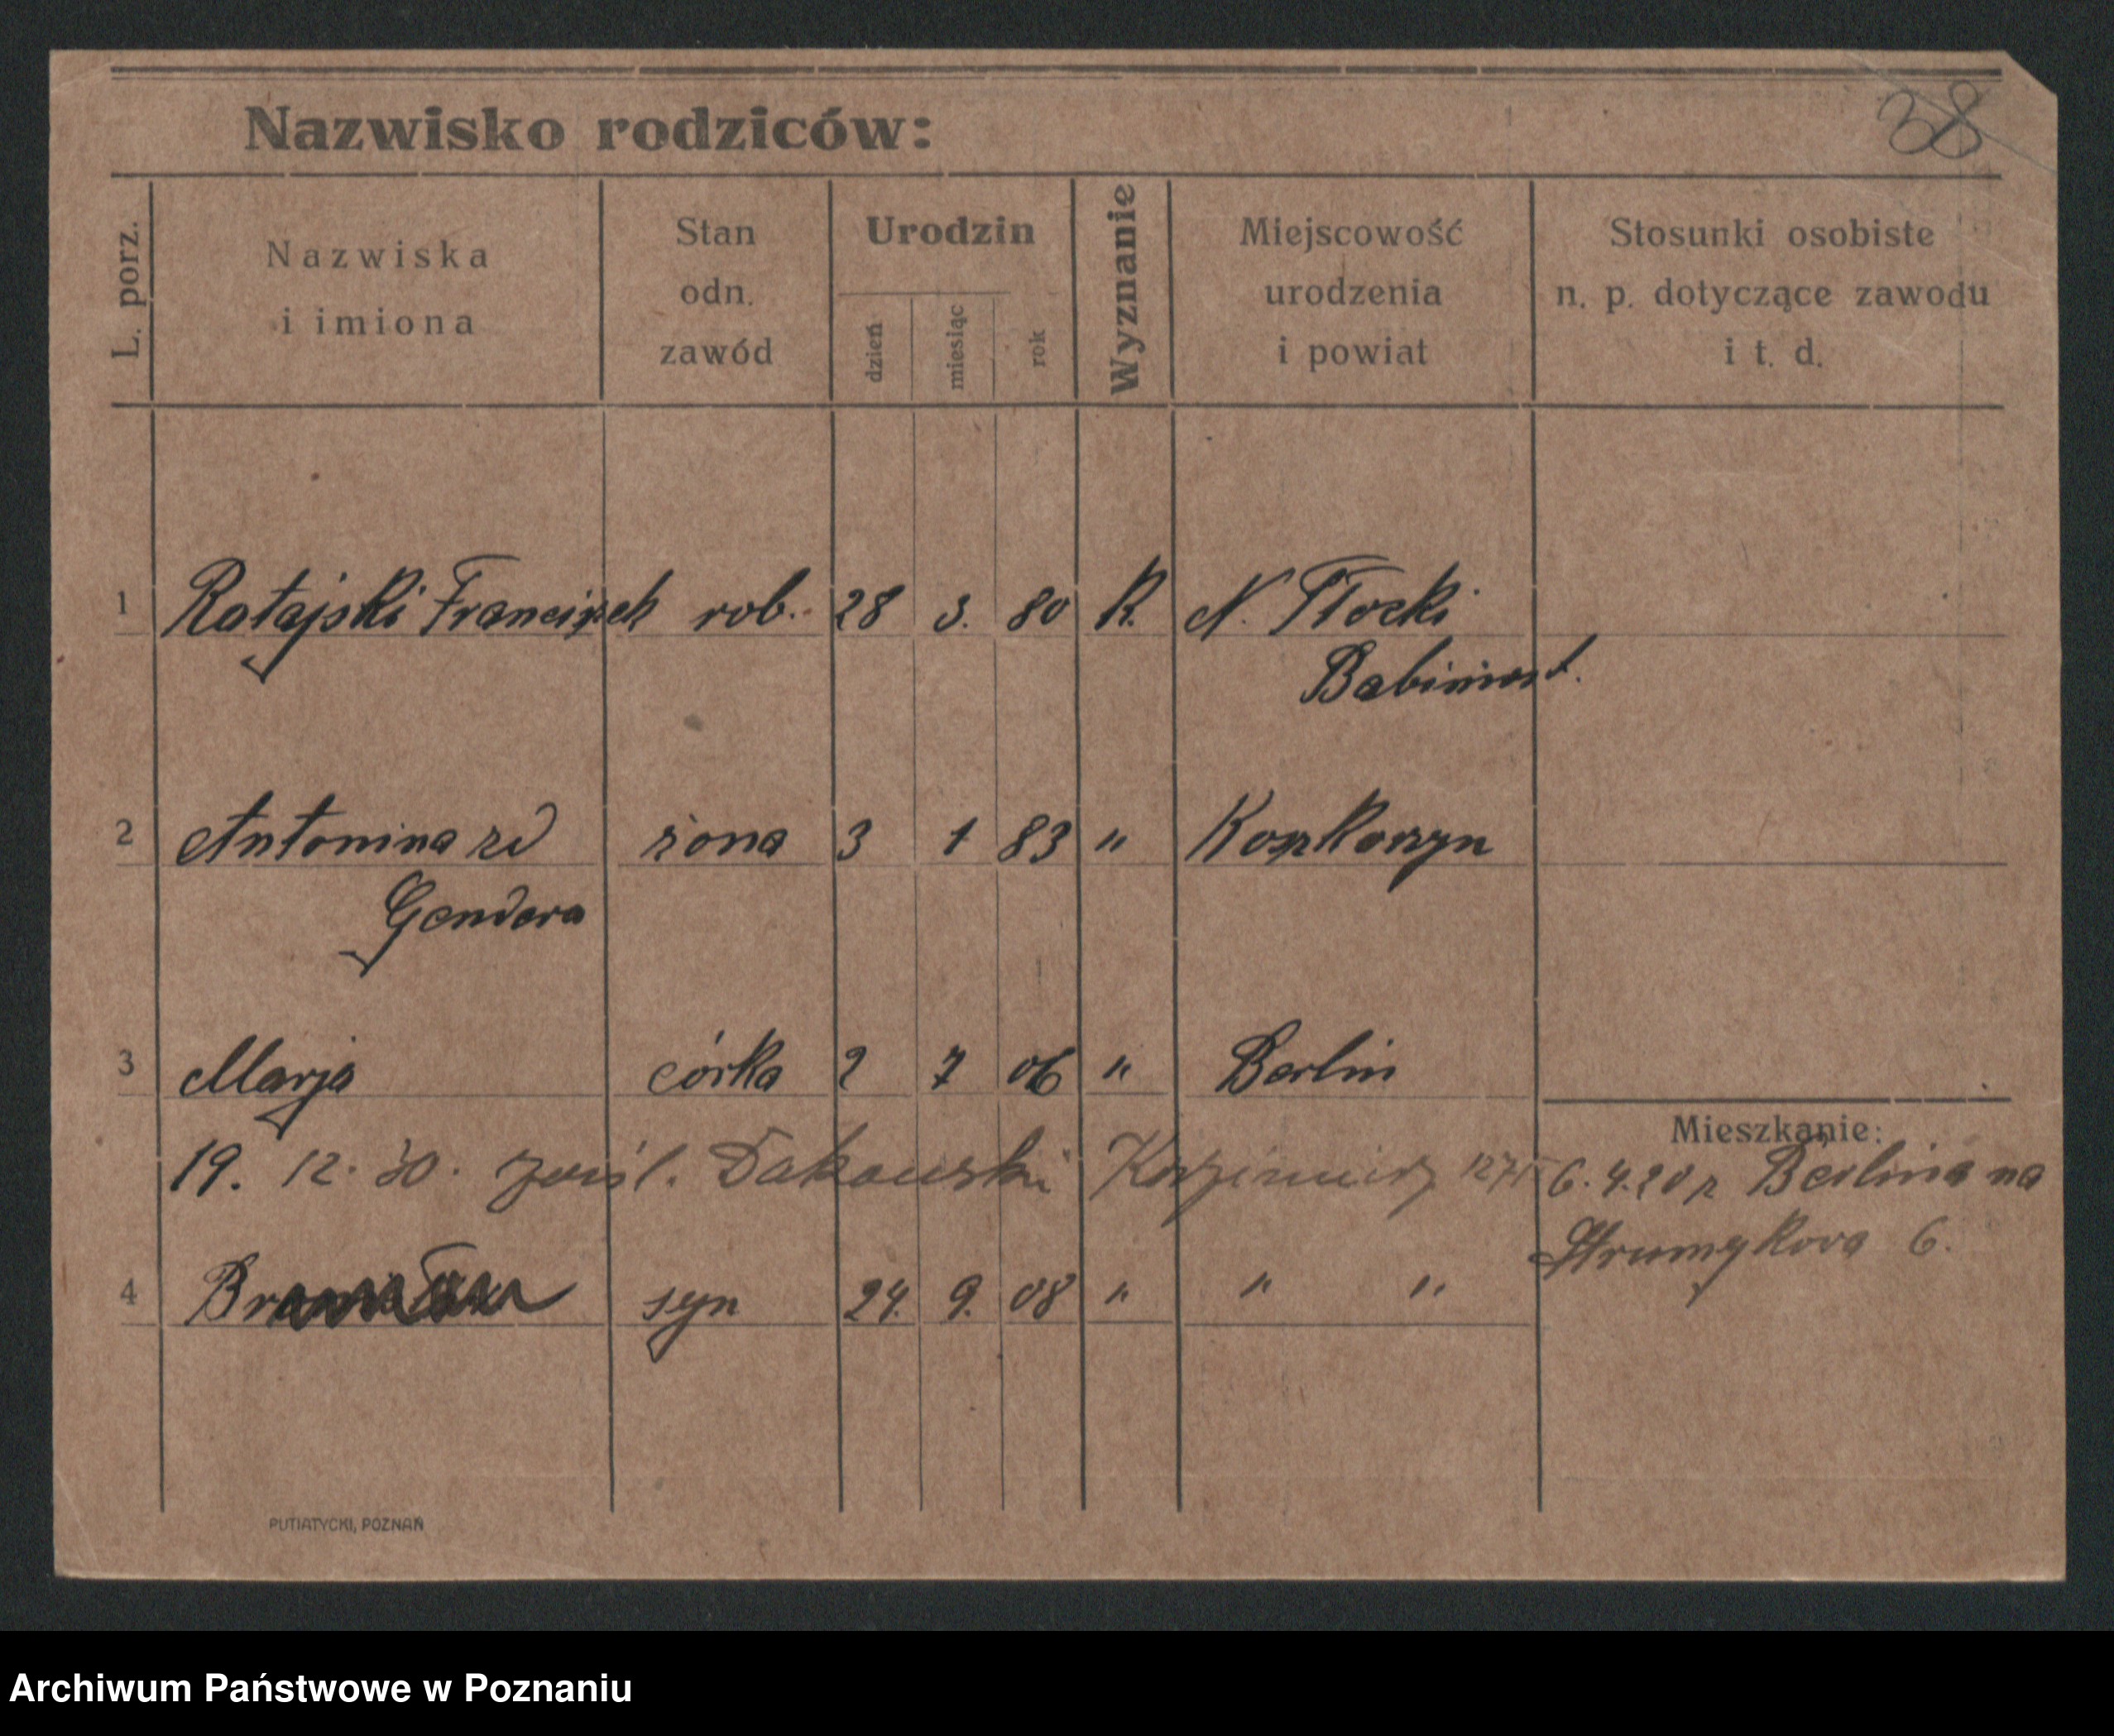 38
Nazwisko rodziców:
L. porz.
Nazwiska
i imiona
Stan
odn.
zawód
Urodzin
dzień
miesiąc
rok
Wyznanie
Miejscowość
urodzenia
i powiat
Stosunki osobiste
n. p. dotyczące zawodu
i t. d.
1 Ratajski Franciszek rob. 28 3. 80 R. N. Tłocki
Babimost.
2 Antonina zd żona 3 1 83 "
Gendera
3 Marja córka 2 7 06 " Berlin
Mieszkanie:
19. 12. 30. Dakowski Kazimierz
6.4.20 z Berlina na
Strumykova 6.
4 syn 24. 9. 08 " " "
PUTIATYCKI, POZNAŃ
Archiwum Państwowe w Poznaniu